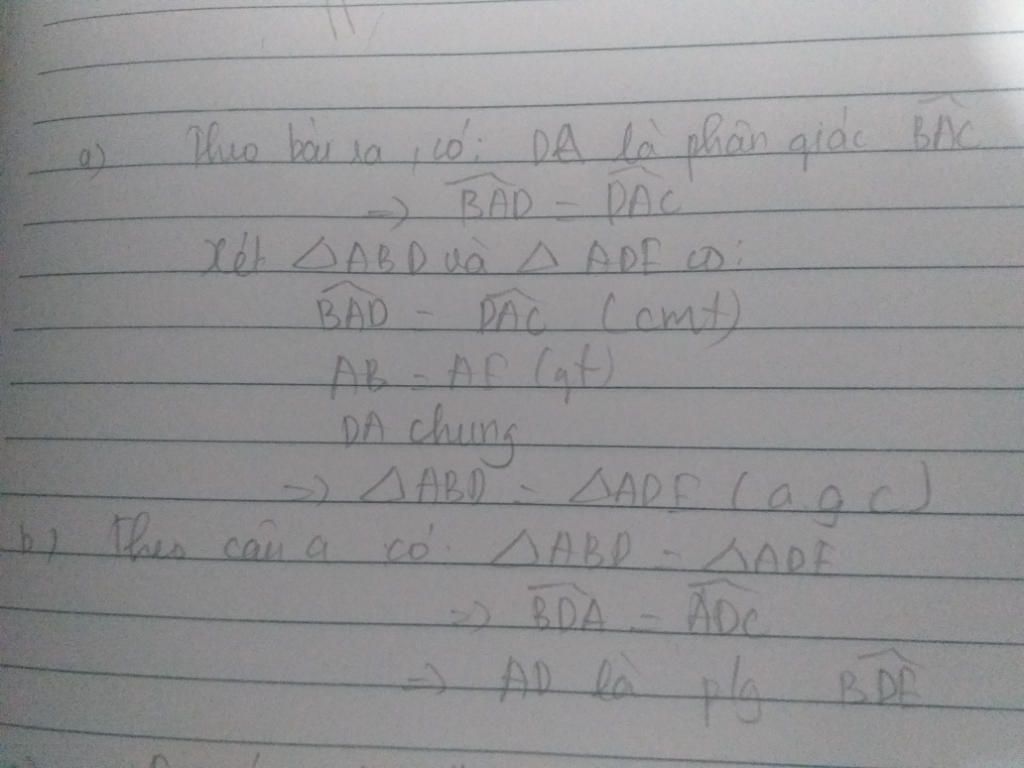 a) Theo bài ra, có: DA là phân giác BAC
=> BAD = DAC
Xét △ABD và △ ADE có:
BAD = DAC (cmt)
AB = AE (gt)
DA chung
=> △ABD = △ADE (a.g.c)
b) Theo câu a có: △ABD = △ADE
=> BDA = ADC
=> AD là p/g BDE